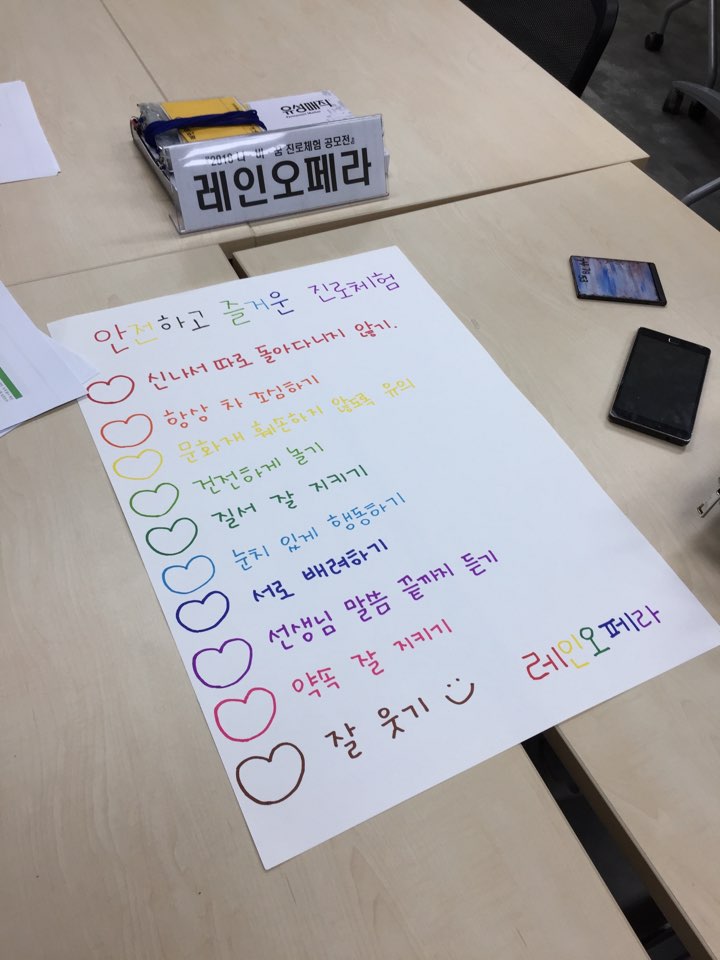 유성매직
진로체험 공모전』
레인오페라
안전하고 즐거운 진로체험
신나서 따로 돌아다니지 않기.
항상 차 조심하기
문화재 훼손하지 않도록 유의
건전하게 놀기
질서 잘 지키기
눈치 있게 행동하기
서로 배려하기
선생님 말씀 끝까지 듣기
약속 잘 지키기
잘 웃기
레인오페라